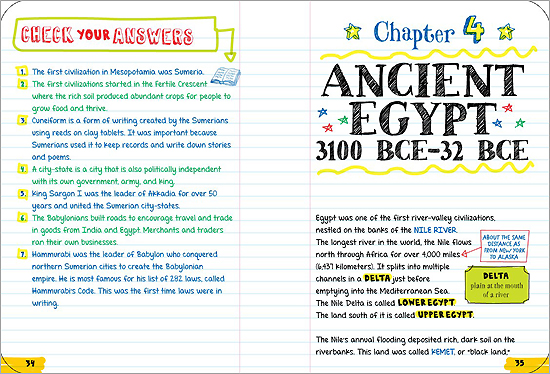 CHECK YOUR ANSWERS
1. The first civilization in Mesopotamia was Sumeria.
2. The first civilizations started in the Fertile Crescent
where the rich soil produced abundant crops for people to
grow food and thrive.
3. Cuneiform is a form of writing created by the Sumerians
using reeds on clay tablets. It was important because
Sumerians used it to keep records and write down stories
and poems.
4. A city-state is a city that is also politically independent
with its own government, army, and king.
5. King Sargon I was the leader of Akkadia for over 50
years and united the Sumerian city-states.
6. The Babylonians built roads to encourage travel and trade
in goods from India and Egypt. Merchants and traders
ran their own businesses.
7. Hammurabi was the leader of Babylon who conquered
northern Sumerian cities to create the Babylonian
empire. He is most famous for his list of 282 laws, called
Hammurabi's Code. This was the first time laws were in
writing.
34
Chapter 4
ANCIENT
EGYPT
3100 BCE–32 BCE
Egypt was one of the first river-valley civilizations,
nestled on the banks of the NILE RIVER.
The longest river in the world, the Nile flows
north through Africa for over 4,000 miles
(6,437 kilometers). It splits into multiple
channels in a DELTA just before
emptying into the Mediterranean Sea.
The Nile Delta is called LOWER EGYPT.
The land south of it is called UPPER EGYPT.
ABOUT THE SAME
DISTANCE AS
FROM NEW YORK
TO ALASKA
DELTA
plain at the mouth
of a river
The Nile's annual flooding deposited rich, dark soil on the
riverbanks. This land was called KEMET, or "black land."
35